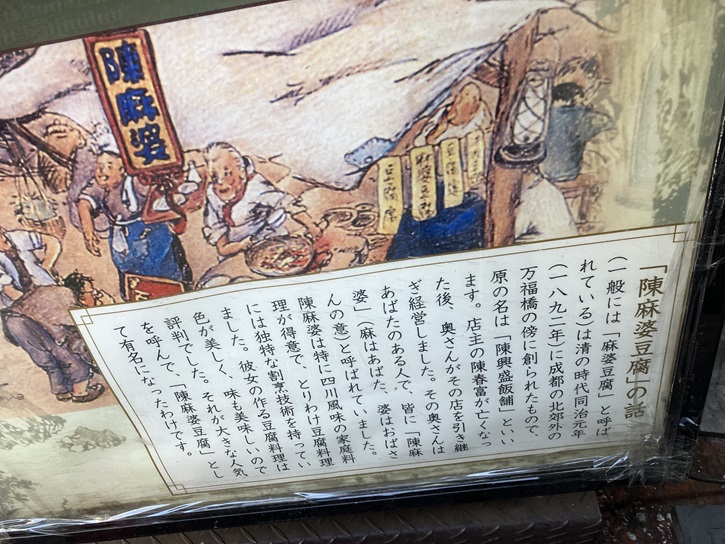 陳麻婆
麻婆豆腐
「陳麻婆豆腐」の話
(一般には「麻婆豆腐」と呼ば
れている)は清の時代同治元年
(一八九二年)に成都の北郊外の
万福橋の傍に創られたもので、
原の名は「陳興盛飯舗」といい
ます。店主の陳春富が亡くなっ
た後、奥さんがその店を引き継
ぎ経営しました。その奥さんは
あばたのある人で、皆に「陳麻
婆」(麻はあばた、婆はおばさ
んの意)と呼ばれていました。
陳麻婆は特に四川風味の家庭料
理が得意で、とりわけ豆腐料理
には独特な割烹技術を持ってい
ました。彼女の作る豆腐料理は
色が美しく、味も美味しいので
評判でした。それが大きな人気
を呼んで、「陳麻婆豆腐」とし
て有名になったわけです。